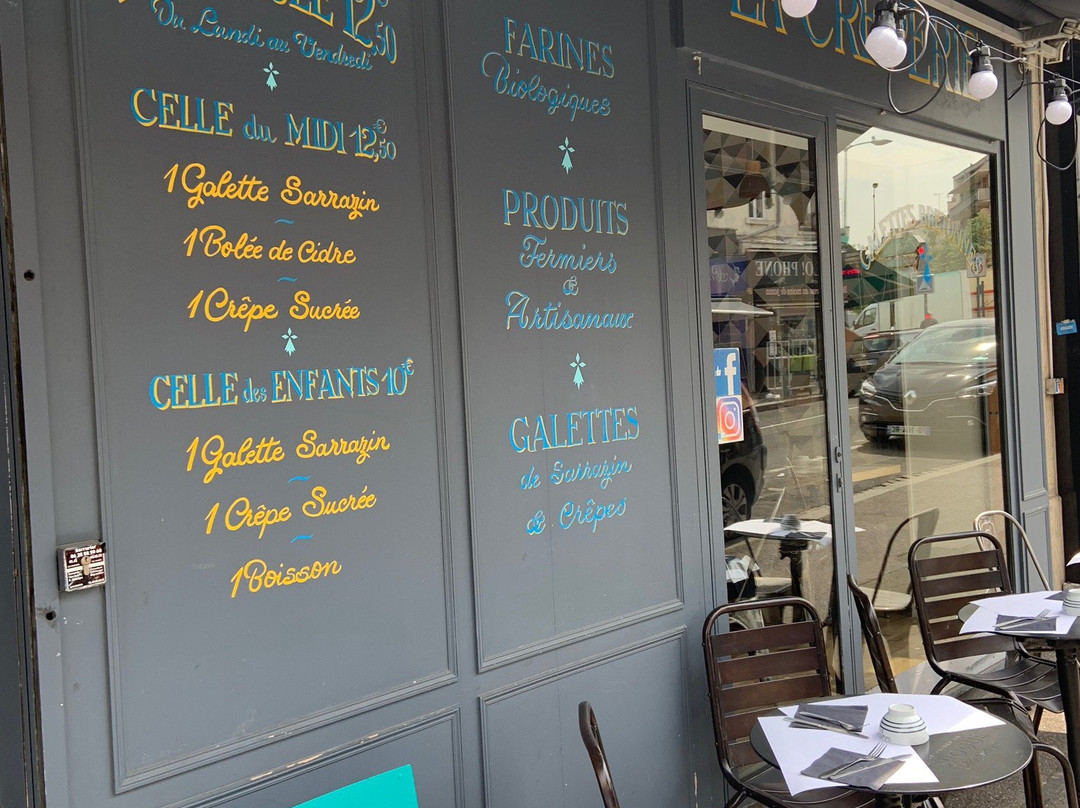 12€50
Du Lundi au Vendredi
CELLE du MIDI 12,€50
1 Galette Sarrazin
~
1 Bolée de Cidre
~
1 Crêpe Sucrée
CELLE des ENFANTS 10€
1 Galette Sarrazin
~
1 Crêpe Sucrée
~
1 Boisson
FARINES
Biologiques
PRODUITS
Fermiers
&
Artisanaux
GALETTES
de Sarrazin
& Crêpes
LA CRÊPERIE
PHONE
f